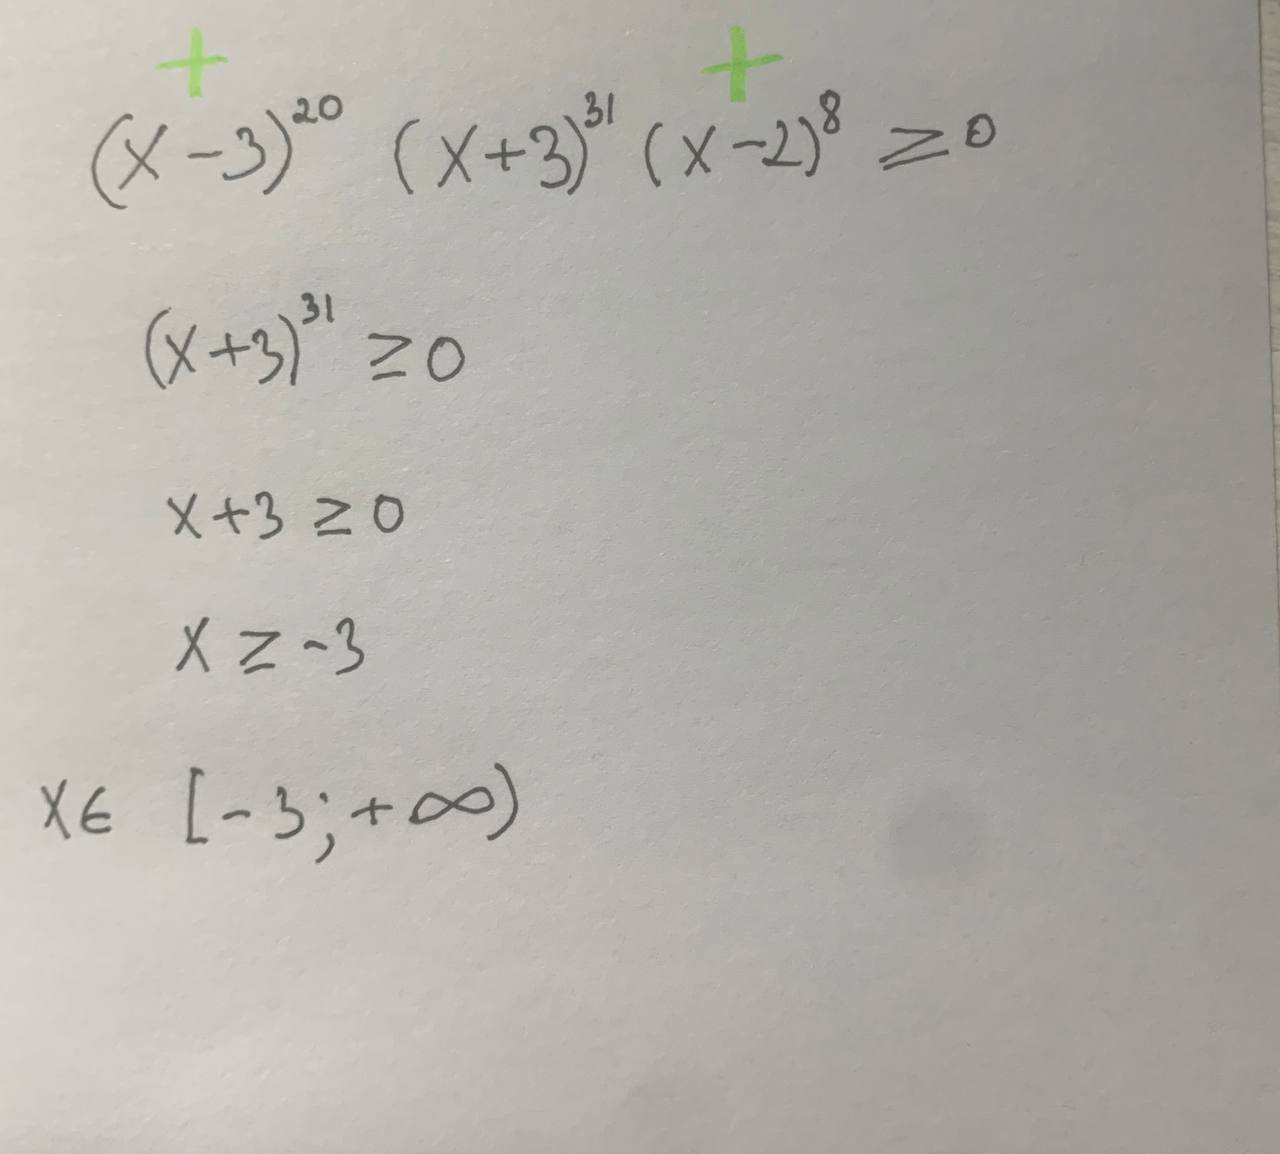 + +
(x-3)²⁰ (x+3)³¹ (x-2)⁸ ≥ 0
(x+3)³¹ ≥ 0
x+3 ≥ 0
x ≥ -3
x ∈ [-3; +∞)